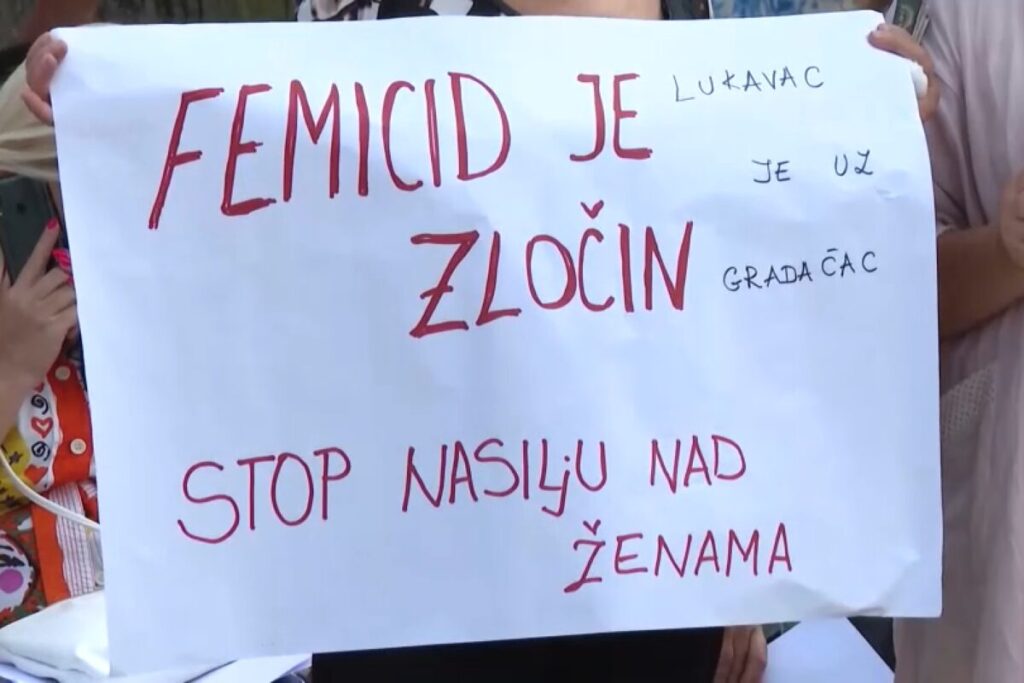 FEMICID JE
ZLOČIN
LUKAVAC
JE UZ
GRADAČAC
STOP NASILjU NAD
ŽENAMA